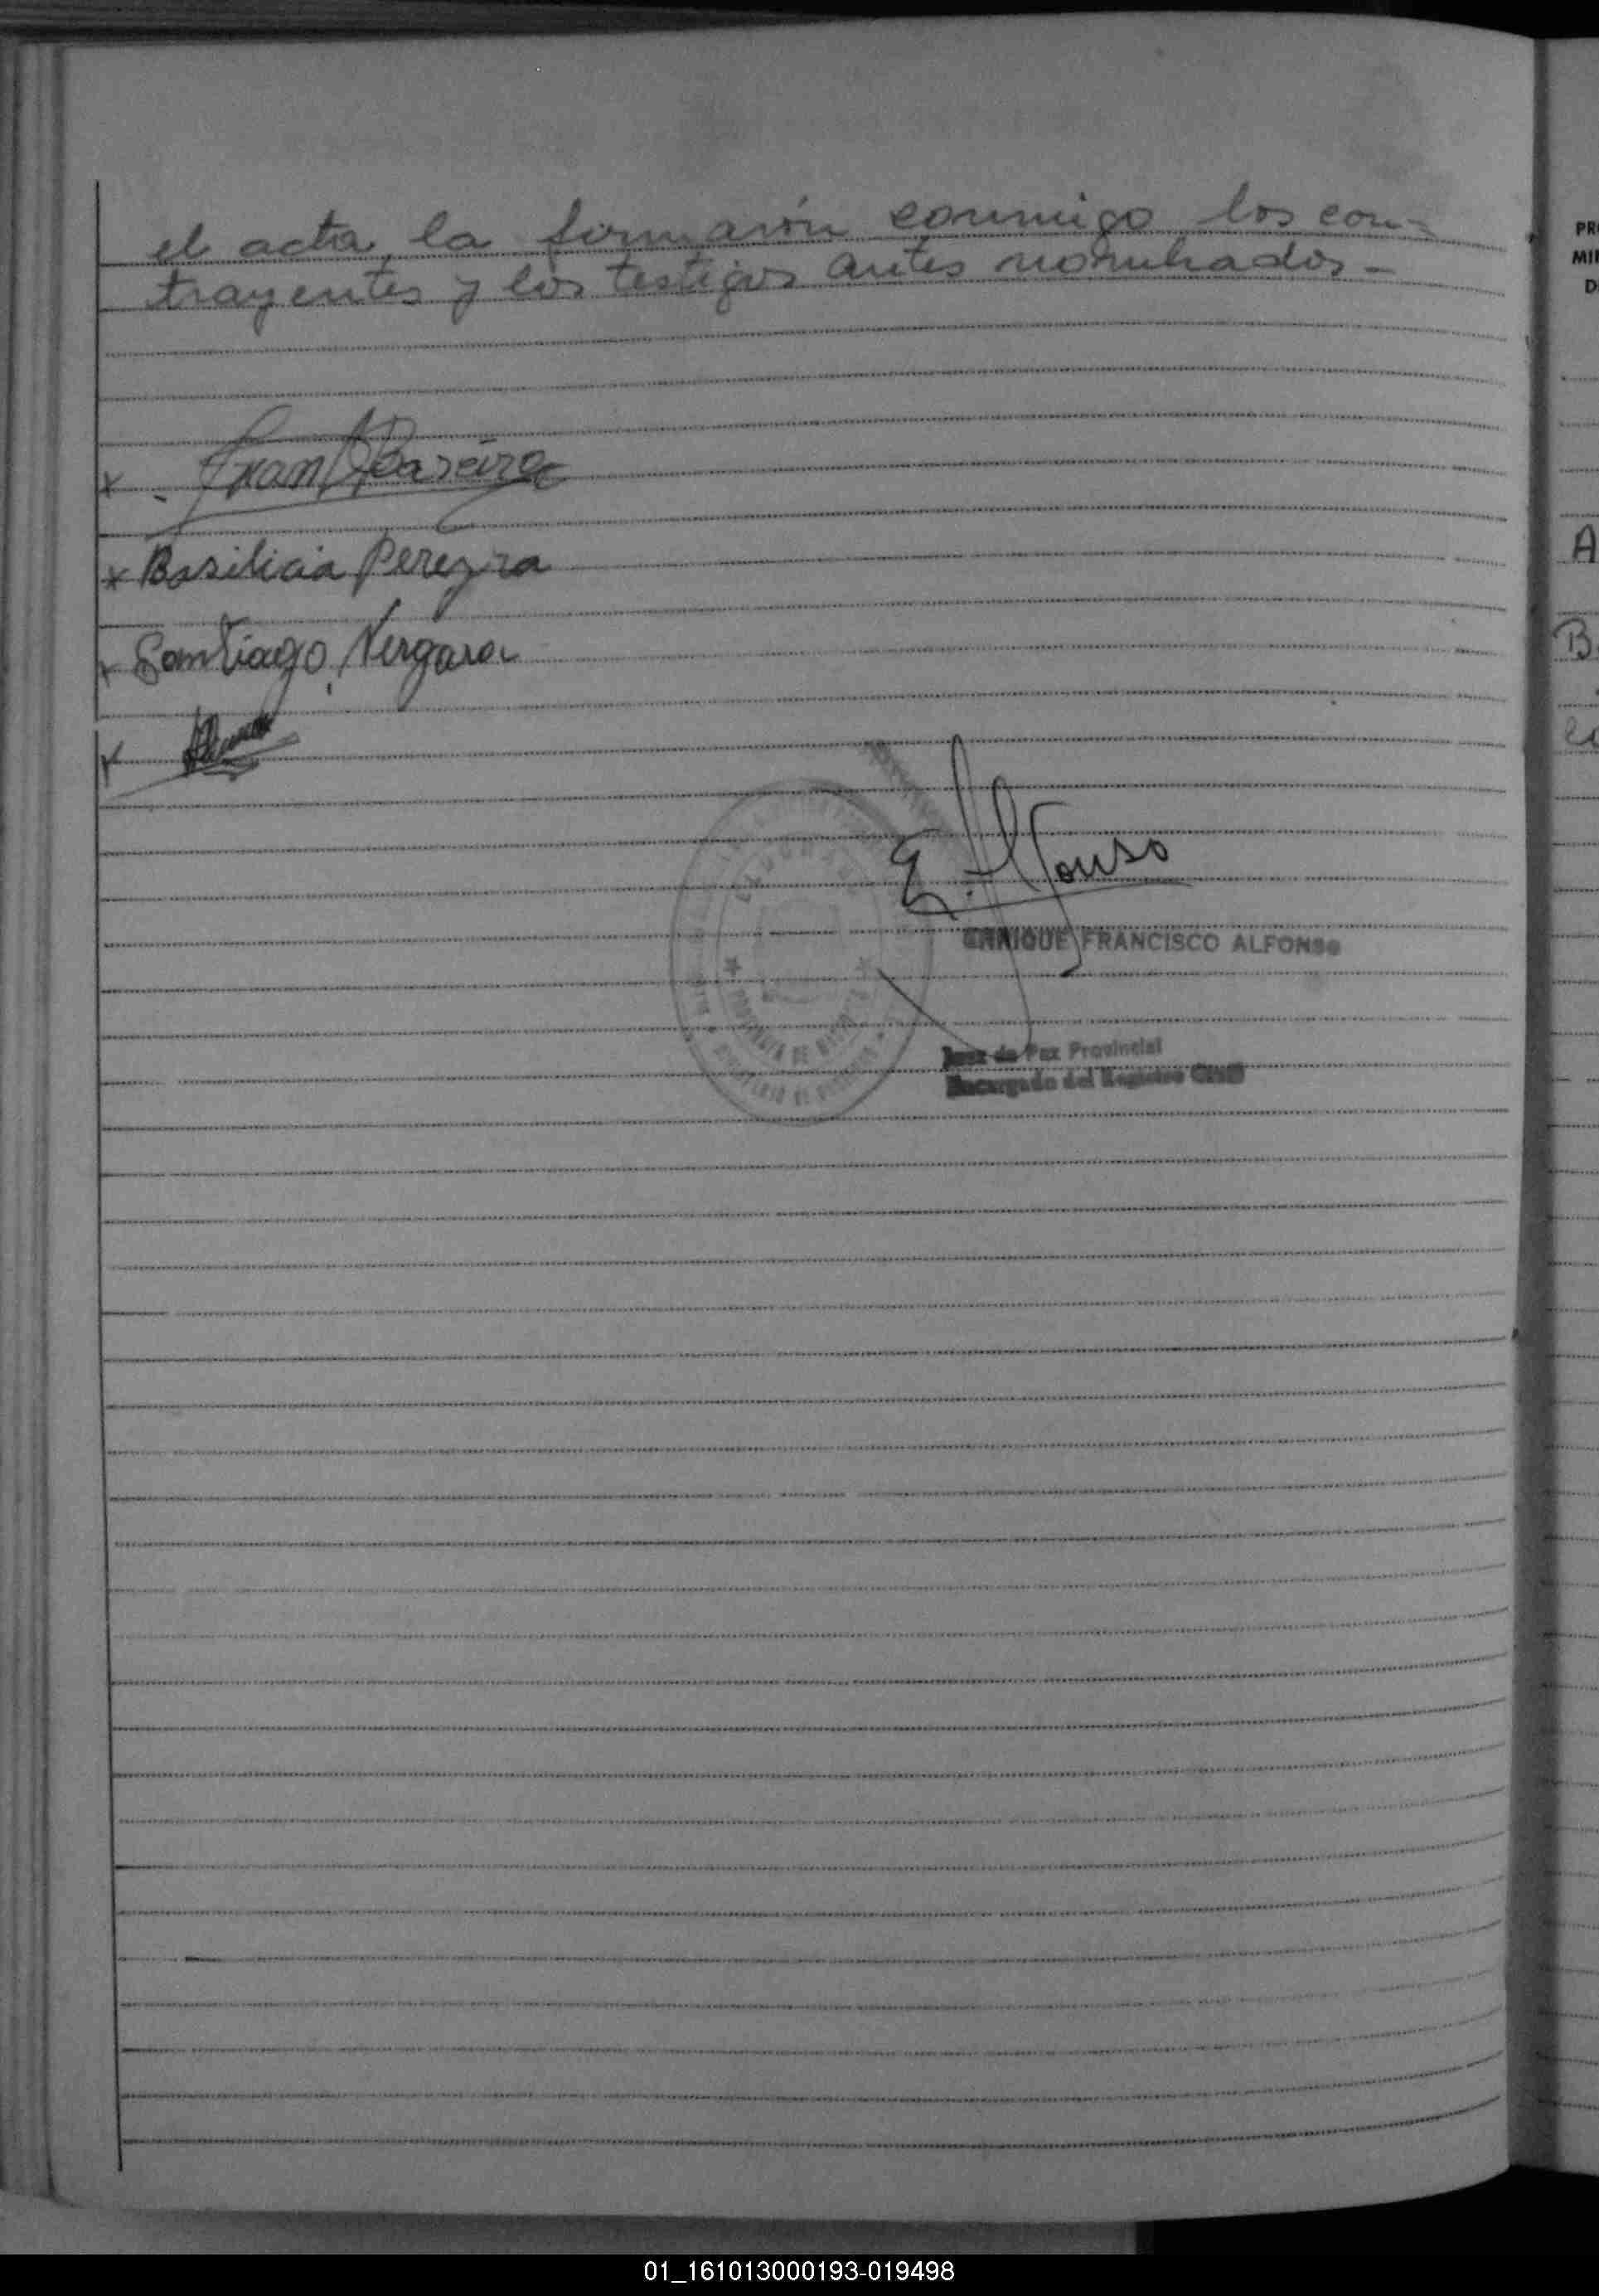 el acta, la firmarón conmigo los con-
trayentes y los testigos antes nombrados-
x
x Basilicia Pereyra
x Santiago Vergara
x
E. Alfonso
ENRIQUE FRANCISCO ALFONSO
Juez de Paz Provincial
Encargado del Registro Civil
PR
MI
D
A
B
01_161013000193-019498